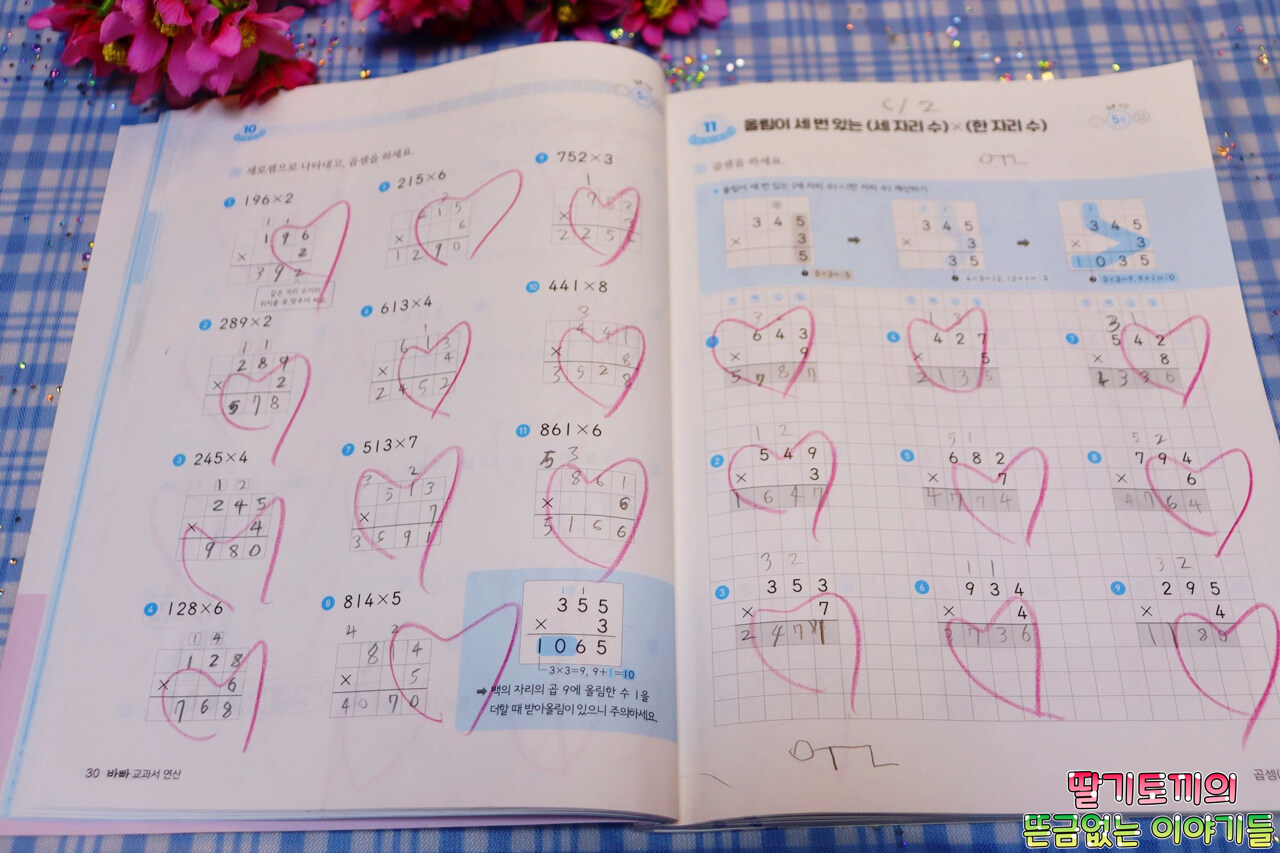 10
세로셈으로 나타내고, 곱셈을 하세요.
1 196×2
1 1
1 9 6
× 2
3 9 2
같은 자리 숫자끼리
위치를 꼭 맞추어 써요.
2 289×2
1 1
2 8 9
× 2
5 7 8
3 245×4
1 2
2 4 5
× 4
9 8 0
4 128×6
1 4
1 2 8
× 6
7 6 8
5 215×6
2 1 5
× 6
1 2 9 0
6 613×4
1
6 1 3
× 4
2 4 5 2
7 513×7
2
5 1 3
× 7
3 5 9 1
8 814×5
4 2
8 1 4
× 5
4 0 7 0
9 752×3
1
7 5 2
×
2 2 5
10 441×8
3
4 4 1
× 8
3 5 2 8
11 861×6
5 3
8 6 1
× 6
5 1 6 6
1 1
3 5 5
× 3
1 0 6 5
3×3=9, 9+1=10
➡ 백의 자리의 곱 9에 올림한 수 1을
더할 때 받아올림이 있으니 주의하세요.
30 바빠 교과서 연산
5/2
11 올림이 세 번 있는 (세 자리 수)×(한 자리 수)
OTL
곱셈을 하세요.
올림이 세 번 있는 (세 자리 수)×(한 자리 수) 계산하기
3 4 5
× 3
5
5×3=15
➡
3 4 5
× 3
3 5
4×3=12, 12+1=13
➡
3 4 5
× 3
1 0 3 5
3×3=9, 9+1=10
3 2
6 4 3
× 9
5 7 8 7
2
1 2
5 4 9
× 3
1 6 4 7
3
3 2
3 5 3
× 7
2 4 7 1
4
1 3
4 2 7
× 5
2 1 3 5
5
5 1
6 8 2
× 7
4 7 7 4
6
1 1
9 3 4
× 4
3 7 3 6
7
3 1
5 4 2
× 8
4 3 3 6
8
5 2
7 9 4
× 6
4 7 6 4
9
3 2
2 9 5
× 4
1 1 8 0
OTL
곱셈
딸기토끼의
뜬금없는 이야기들.